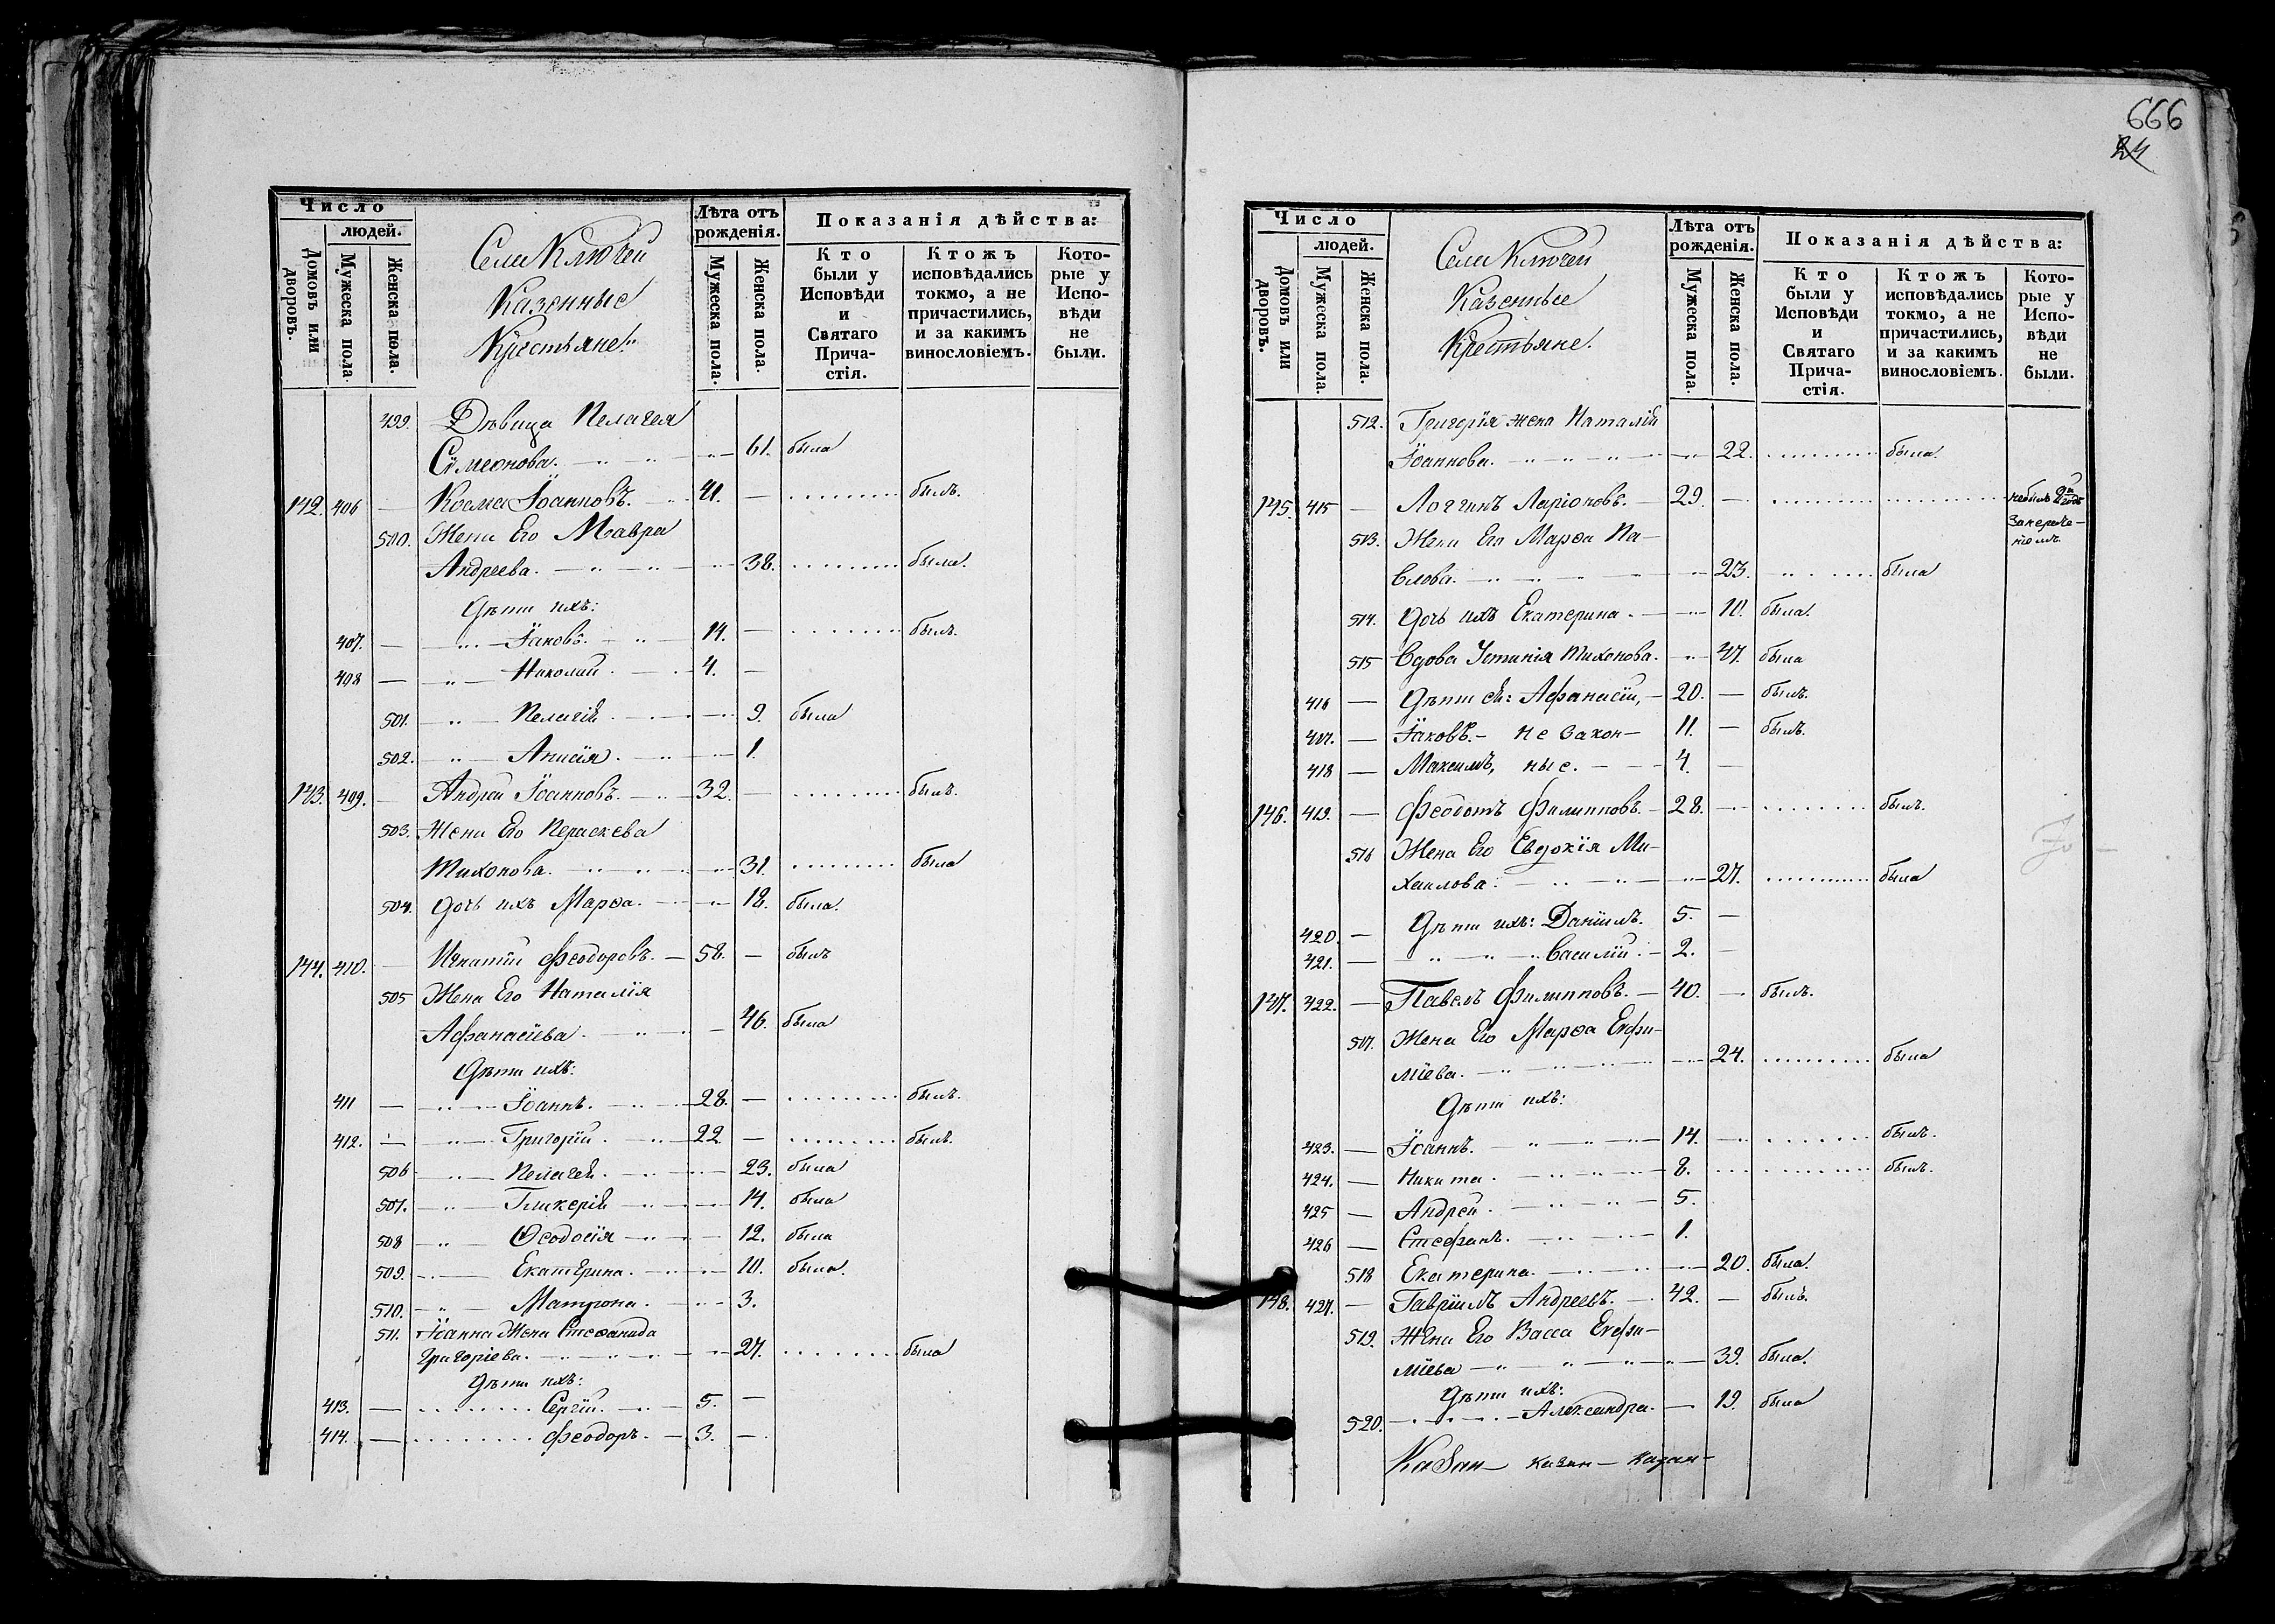 666
24
Число
людей.
Домовъ или дворовъ.
Мужеска пола.
Женска пола.
Села Ключей
Казенные
Крестьяне:
Лѣта отъ рожденія.
Мужеска пола.
Женска пола.
Показанія дѣйства:
Кто были у Исповѣди и Святаго Прича-стія.
Ктожъ исповѣдались токмо, а не причастились, и за какимъ винословіемъ.
Кото-рые у Испо-вѣди не были.
499. Дѣвица Пелагея
Сѵмеонова. 61. была
142. 406 — Косма Іоанновъ. 41. — былъ.
500. Жена Его Мавра
Андреева. 38. была.
Дѣти ихъ:
407. — Іаковъ. 14. — былъ.
408 — Николай. 4. —
501. Пелагія. 9. была
502. Анисія. 1.
143. 409. — Андрей Іоанновъ. 32. — былъ.
503. Жена Его Пераскева
Тихонова. 31. была
504. Дочь ихъ Марѳа. 18. была.
144. 410. — Игнатій Феодоровъ. 58. — былъ
505 Жена Его Наталія
Афанасіева. 46. была
Дѣти ихъ:
411 — Іоаннъ. 28. — былъ.
412. — Григорій. 22 — былъ.
506 Пелагея. 23. была
507. Гликерія 14. была
508 Ѳеодосія 12. была
509. Екатерина. 10. была.
510. Матрона. 3.
511. Іоанна Жена Стефанида
Григоріева. 27. была
Дѣти ихъ:
413. — Сергій. 5. —
414. — Феодоръ. 3. —
Число
людей.
Домовъ или дворовъ.
Мужеска пола.
Женска пола.
Села Ключей
Казенные
Крестьяне.
Лѣта отъ рожденія.
Мужеска пола.
Женска пола.
Показанія дѣйства:
Кто были у Исповѣди и Святаго Прича-стія.
Ктожъ исповѣдались токмо, а не причастились, и за какимъ винословіемъ.
Кото-рые у Испо-вѣди не были.
512. Григорія жена Наталія
Іоаннова. 22. была.
145. 415 — Логгинъ Ларіоновъ. 29. — небылъ
513. Жена Его Марѳа Па-
влова. 23. была
514. Дочь ихъ Екатерина. 10. была.
515 Вдова Устинія Тихонова. 47. была
416 — Дѣти ея: Афанасій, 20. — былъ.
417. — Іаковъ. Не Закон- 11. — былъ.
418 — Максимъ, ные. 4. —
146. 419. — Феодотъ Филипповъ. 28. — былъ.
516 Жена Его Евдокія Ми-
хаилова. 27. была
420. — Дѣти ихъ: Даніилъ. 5. —
421. — Василій. 2. —
147. 422. — Павелъ Филипповъ. 40. — былъ.
517. Жена Его Марѳа Ефи-
міева. 24. была
Дѣти ихъ:
423. — Іоаннъ. 14. — былъ.
424. — Никита. 8. былъ.
425 — Андрей. 5.
426 — Стефанъ. 1.
518 Екатерина. 20. была.
148. 427. — Гавріилъ Андреевъ. 42. — былъ.
519. Жена Его Васса Ефи-
міева 39. была.
Дѣти ихъ:
520. Александра. 19. была
Казан- казан- казан-